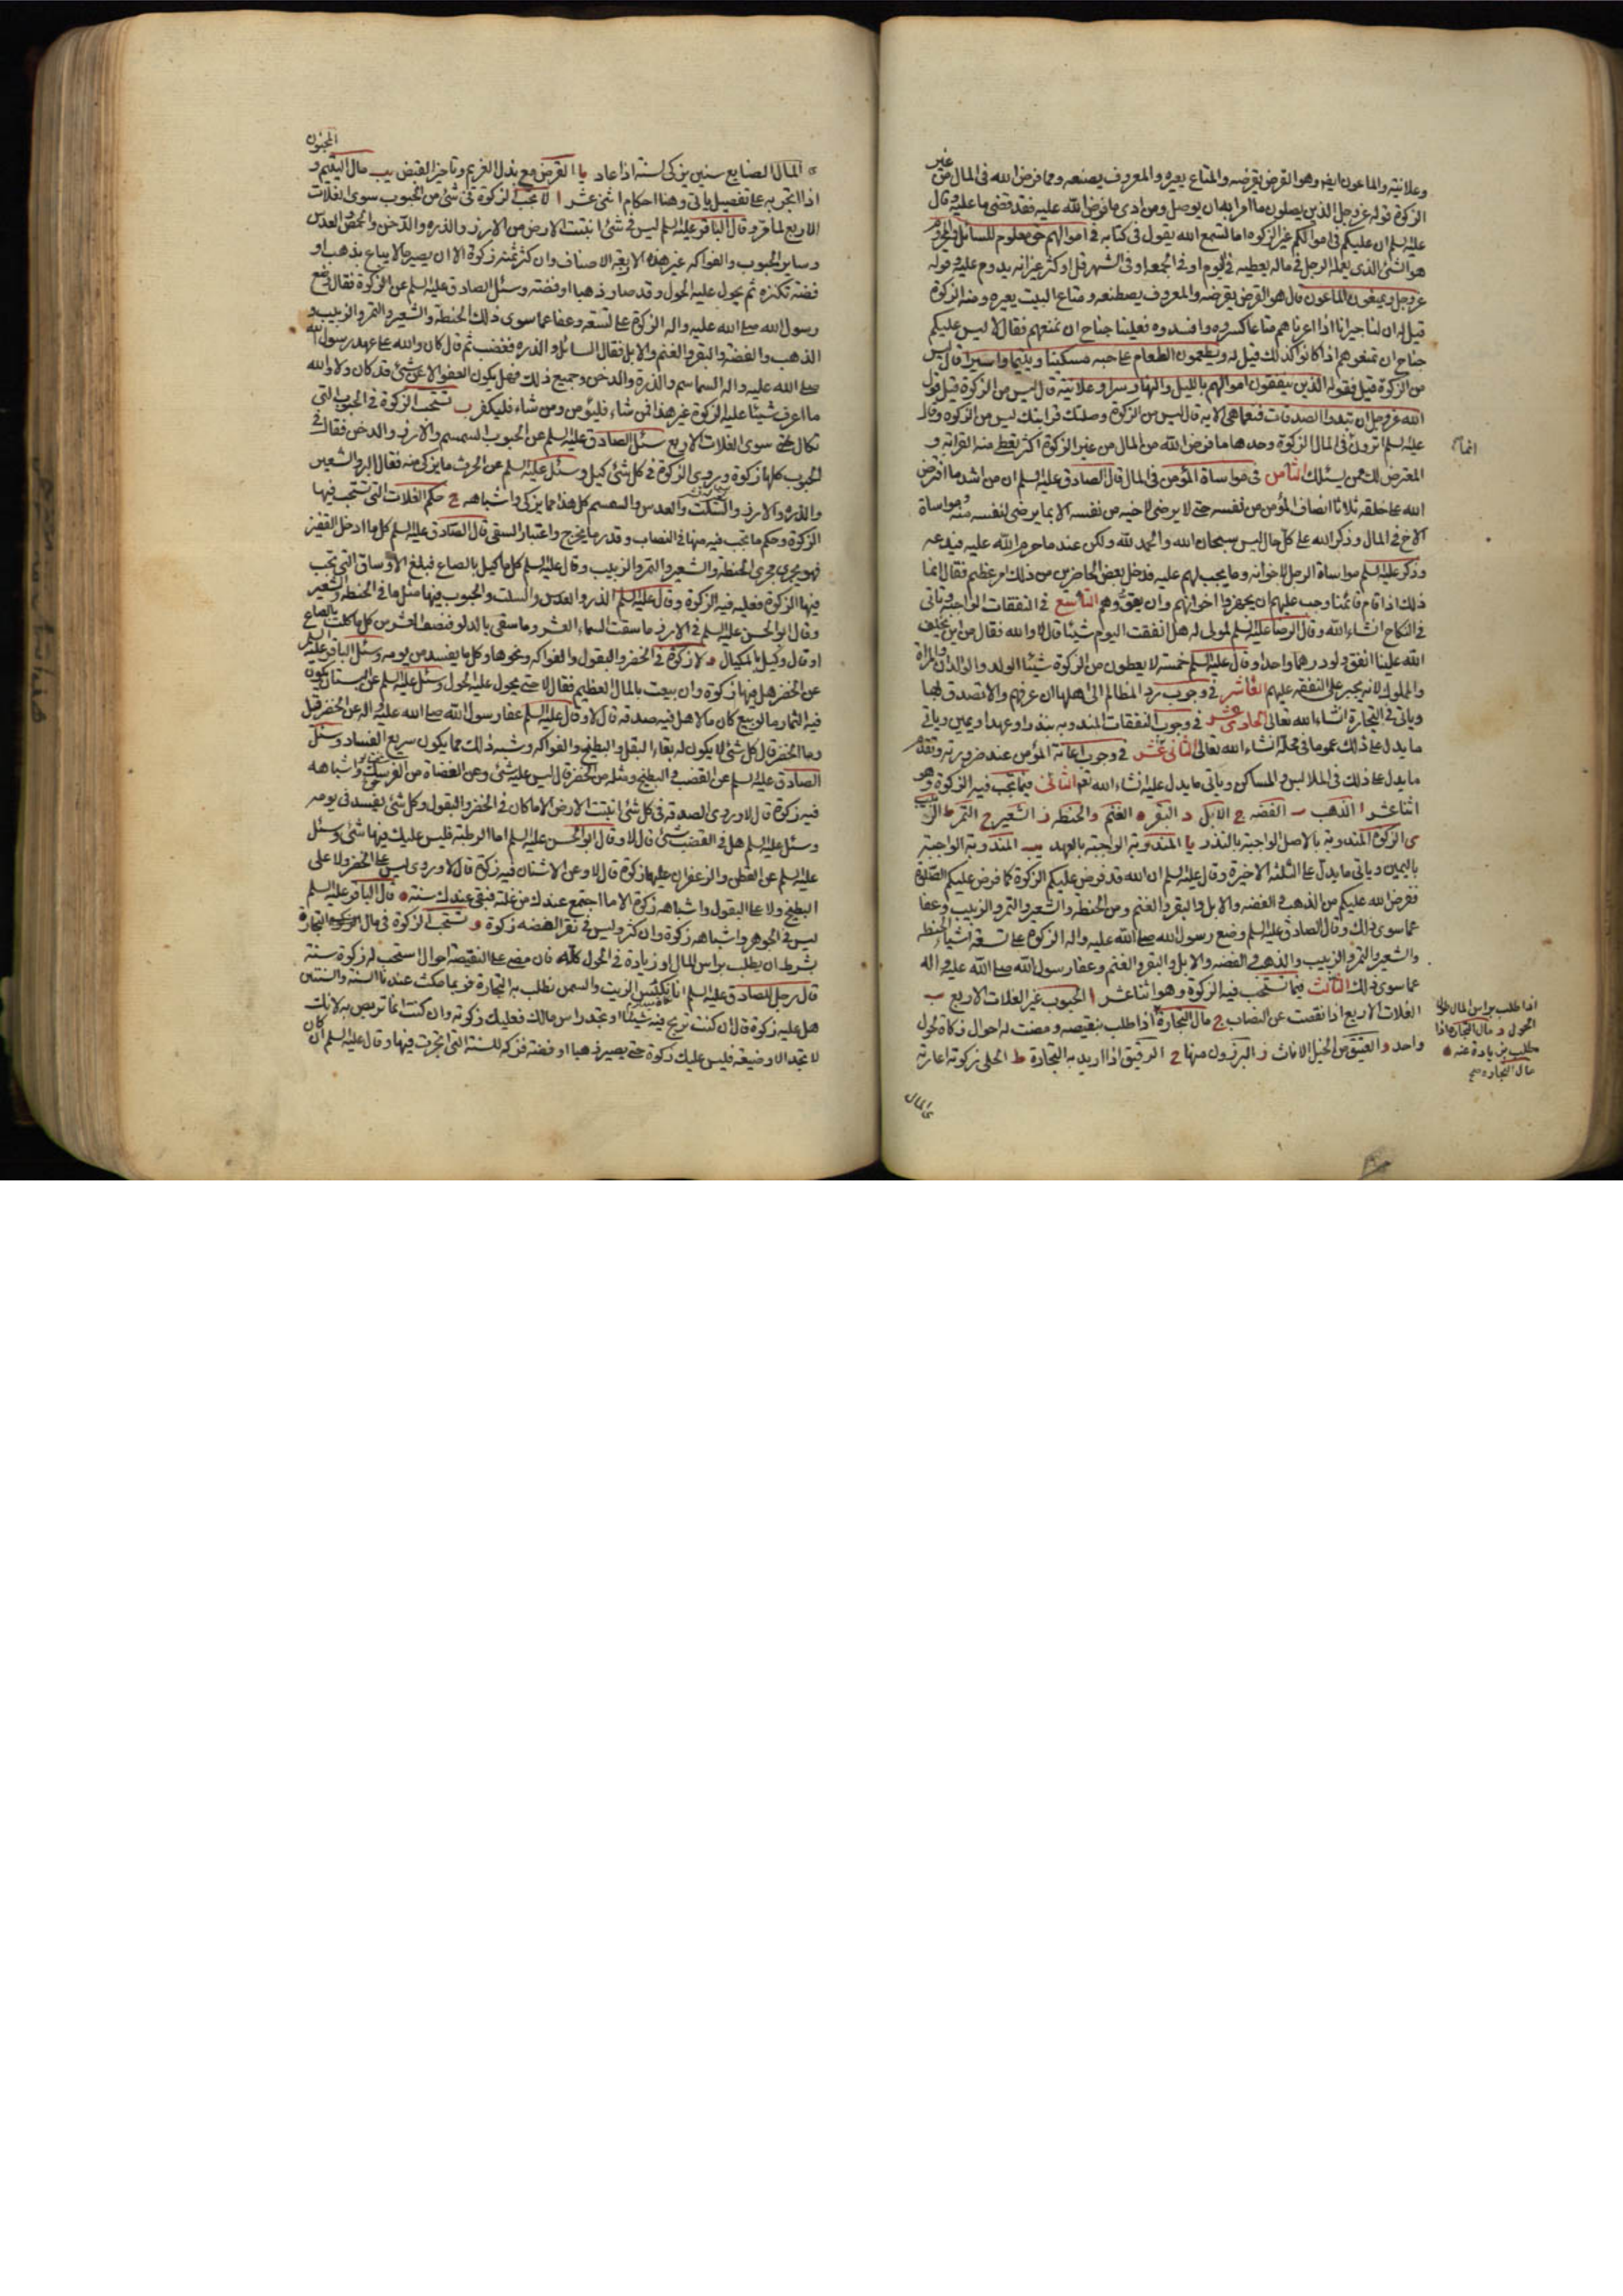 وعلانية والماعون ايضا وهو القرض يقرضه والمتاع يعيره والمعروف يصنعه ومما فرض الله في المال من غير
الزكوة قوله عز وجل الذين يصلون ما امر الله به ان يوصل ومن ادى ما فرض الله عليه فقد قضى ما عليه وقال
عليه السلم ان عليكم في اموالكم غير الزكوة اما تسمع الله يقول في كتابه في اموالهم حق معلوم للسائل والمحروم
هو الشئ الذي يعمله الرجل في ماله يعطيه في اليوم او في الجمعة او في الشهر قل او كثر غير انه يدوم عليه وقوله
عز وجل ويمنعون الماعون قال هو القرض يقرضه والمعروف يصطنعه ومتاع البيت يعيره ومنه الزكوة
قيل له ان لنا جيرانا اذا اعرناهم متاعا كسروه وافسدوه فعلينا جناح ان نمنعهم فقال لا ليس عليكم
جناح ان تمنعوهم اذا كانوا كذلك قيل له ويطعمون الطعام على حبه مسكينا ويتيما واسيرا قال ليس
من الزكوة قيل فقوله الذين ينفقون اموالهم بالليل والنهار سرا وعلانية قال ليس من الزكوة قيل قول
الله عز وجل ان تبدوا الصدقات فنعما هي الاية قال ليس من الزكوة وصلتك قرابتك ليس من الزكوة وقال
عليه السلم اترون في المال الزكوة وحدها ما فرض الله من المال من غير الزكوة اكثر يعطى منه القرابة و
انما
المعترض لك ممن يسئلك الثامن في مواساة المؤمن في المال قال الصادق عليه السلم ان من اشد ما افترض
الله على خلقه ثلاثا انصاف المؤمن من نفسه حتى لا يرضى لاخيه من نفسه الا بما يرضى لنفسه منه ومواساة
الاخ في المال وذكر الله على كل حال ليس سبحان الله والحمد لله ولكن عند ما حرم الله عليه فيدعه
وذكر عليه السلم مواساة الرجل لاخوانه وما يجب لهم عليه فدخل بعض الحاضرين من ذلك امر عظيم فقال انما
ذلك اذا قام قائمنا وجب عليهم ان يجهزوا اخوانهم وان يقووهم التاسع في النفقات الواجبة وياتي
في النكاح انشاء الله وقال الرضا عليه السلم لمولى له هل انفقت اليوم شيئا قال لا والله فقال من اين يخلف
الله علينا انفق ولو درهما واحدا وقال عليه السلم خمسة لا يعطون من الزكوة شيئا الولد والوالدان والمراة
والمملوك لانه يجبر على النفقة عليهم العاشر في وجوب رد المظالم الى اهلها ان عرفهم والا تصدق بها
وياتي في التجارة انشاء الله تعالى الحادى عشر في وجوب النفقات المندوبه بنذر او عهد او يمين وياتي
ما يدل على ذلك عموما في محله انشاء الله تعالى الثانى عشر في وجوب اعانة المؤمن عند ضرورته وتقدم
ما يدل على ذلك في الملابس والمساكن وياتي ما يدل عليه انشاء الله تعالى الثانى فيما تجب فيه الزكوة وهو
اثنا عشر ا الذهب ب الفضة ج الابل د البقر ه الغنم و الحنطه ز الشعير ح التمر ط الزبيب
ى الزكوة المندوبة بالاصل الواجبة بالنذر يا المندوبة الواجبة بالعهد يب المندوبة الواجبة
باليمين وياتي ما يدل على الثلثة الاخيرة وقال عليه السلم ان الله قد فرض عليكم الزكوة كما فرض عليكم الصلوة
ففرض الله عليكم من الذهب والفضة والابل والبقر والغنم ومن الحنطة والشعير والتمر والزبيب وعفا
عما سوى ذلك وقال الصادق عليه السلم وضع رسول الله صلى الله عليه واله الزكوة على تسعة اشياء الحنطه
والشعير والتمر والزبيب والذهب والفضه والابل والبقر والغنم وعفا رسول الله صلى الله عليه واله
عما سوى ذلك الثالث فيما تستحب فيه الزكوة وهو اثنا عشر ا الحبوب غير الغلات الاربع ب
الغلات الاربع اذا نقصت عن النصاب ج مال التجارة اذا طلب بنقيصه ومضت له احوال زكاه لحول
واحد و العتيق من الخيل الاناث ز البرذون منها ح الرقيق اذا اريد به التجارة ط الحلى زكوته اعارته
اذا طلب براس المال طول
الحول د مال التجارة اذا
طلب بزيادة عنه ه
مال التجارة صح
ى المال
ى المال الضايع سنين يزكى لسنة اذا عاد يا القرض مع بذل الغريم وتاخير القبض يب مال اليتيم و
المجنون
اذا اتجر به على تفصيل ياتي وهنا احكام اثنى عشر ا لا تجب الزكوة في شئ من الحبوب سوى الغلات
الاربع لما مر وقال الباقر عليه السلم ليس في شئ انبتت الارض من الارز والذره والدخن والحمص والعدس
وساير الحبوب والفواكه غير هذه الاربعة الاصناف وان كثر ثمنه زكوة الا ان يصير مالا يباع بذهب او
فضة تكنزه ثم يحول عليه الحول وقد صار ذهبا او فضة وسئل الصادق عليه السلم عن الزكوة فقال وضع
رسول الله صلى الله عليه واله الزكوة على تسعة وعفا عما سوى ذلك الحنطة والشعير والتمر والزبيب و
الذهب والفضة والبقر والغنم والابل فقال السائل والذره فغضب ثم قال كان والله على عهد رسول الله
صلى الله عليه واله السماسم والذرة والدخن وجميع ذلك فهل يكون العفو الا عن شئ قد كان ولا والله
ما اعرف شيئا عليه الزكوة غير هذا فمن شاء فليؤمن ومن شاء فليكفر ب تستحب الزكوة في الحبوب التي
تكال سوى الغلات الاربع سئل الصادق عليه السلم عن الحبوب السمسم والارز والدخن فقال في
الحبوب كلها زكوة وروى الزكوة في كل شئ كيل وسئل عليه السلم عن الحرث ما يزكى منه فقال البر والشعير
والذره والارز والسلت والعدس والسمسم كل هذا مما يزكى واشباهه ج حكم الغلات التي تستحب فيها
الزكوة وحكم ما تجب فيه منها في النصاب وقدر ما يخرج واعتبار السقى قال الصادق عليه السلم كل ما ادخل القفيز
فهو يجرى مجرى الحنطة والشعير والتمر والزبيب وقال عليه السلم كل ما كيل بالصاع فبلغ الاوساق التي تجب
فيها الزكوة فعليه فيه الزكوة وقال عليه السلم الذره والعدس والسلت والحبوب فيها مثل ما في الحنطة والشعير
وقال ابو الحسن عليه السلم في الارز ما سقت السماء العشر وما سقى بالدلو فنصف العشر من كل ما كلت بالصاع
او قال وكيل بالمكيال د لا زكوة في الخضر والبقول والفواكه ونحوها وكل ما يفسد من يومه وسئل الباقر عليه السلم
عن الخضر هل فيها زكوة وان بيعت بالمال العظيم فقال لا حتى يحول عليه الحول وسئل عليه السلم عن البستان يكون
فيه الثمار ما لو بيع كان مالا هل فيه صدقه قال لا وقال عليه السلم عفا رسول الله صلى الله عليه واله عن الخضر قيل
وما الخضر قال كل شئ لا يكون له بقاء البقل والبطيخ والفواكه وشبه ذلك مما يكون سريع الفساد وسئل
الصادق عليه السلم عن القضب والبطيخ ومثله من الخضر قال ليس عليه شئ وعن العضاة من الفرسك واشباهه
فيه زكوة قال لا وروى الصدقة في كل شئ انبتت الارض الا ما كان في الخضر والبقول وكل شئ يفسد في يومه
وسئل عليه السلم هل في القضب شئ قال لا وقال ابو الحسن عليه السلم اما الرطبة فليس عليك فيها شئ وسئل
عليه السلم عن القطن والزعفران عليهما زكوة قال لا وعن الاشنان فيه زكوة قال لا وروى ليس على الخضر ولا على
البطيخ ولا على البقول واشباهه زكوة الا ما اجتمع عندك من غلته فبقى عندك سنة ه قال الباقر عليه السلم
ليس في الجوهر واشباهه زكوة وان كثر وليس في نقر الفضه زكوة و تستحب الزكوة في مال التجارة
بشرط ان يطلب براس المال او زيادة في الحول كله فان مضى على النقيصة احوال استحب له زكوة سنة
قال رجل للصادق عليه السلم انا نكبس الزيت والسمن نطلب به التجارة فربما مكث عندنا السنة والسنتين
هل عليه زكوة قال ان كنت تربح فيه شيئا او تجد راس مالك فعليك زكوته وان كنت انما تربص به لانك
لا تجد الا وضيعة فليس عليك زكوة حتى يصير ذهبا او فضة فزكه للسنة التي اتجرت فيها وقال عليه السلم ان كان